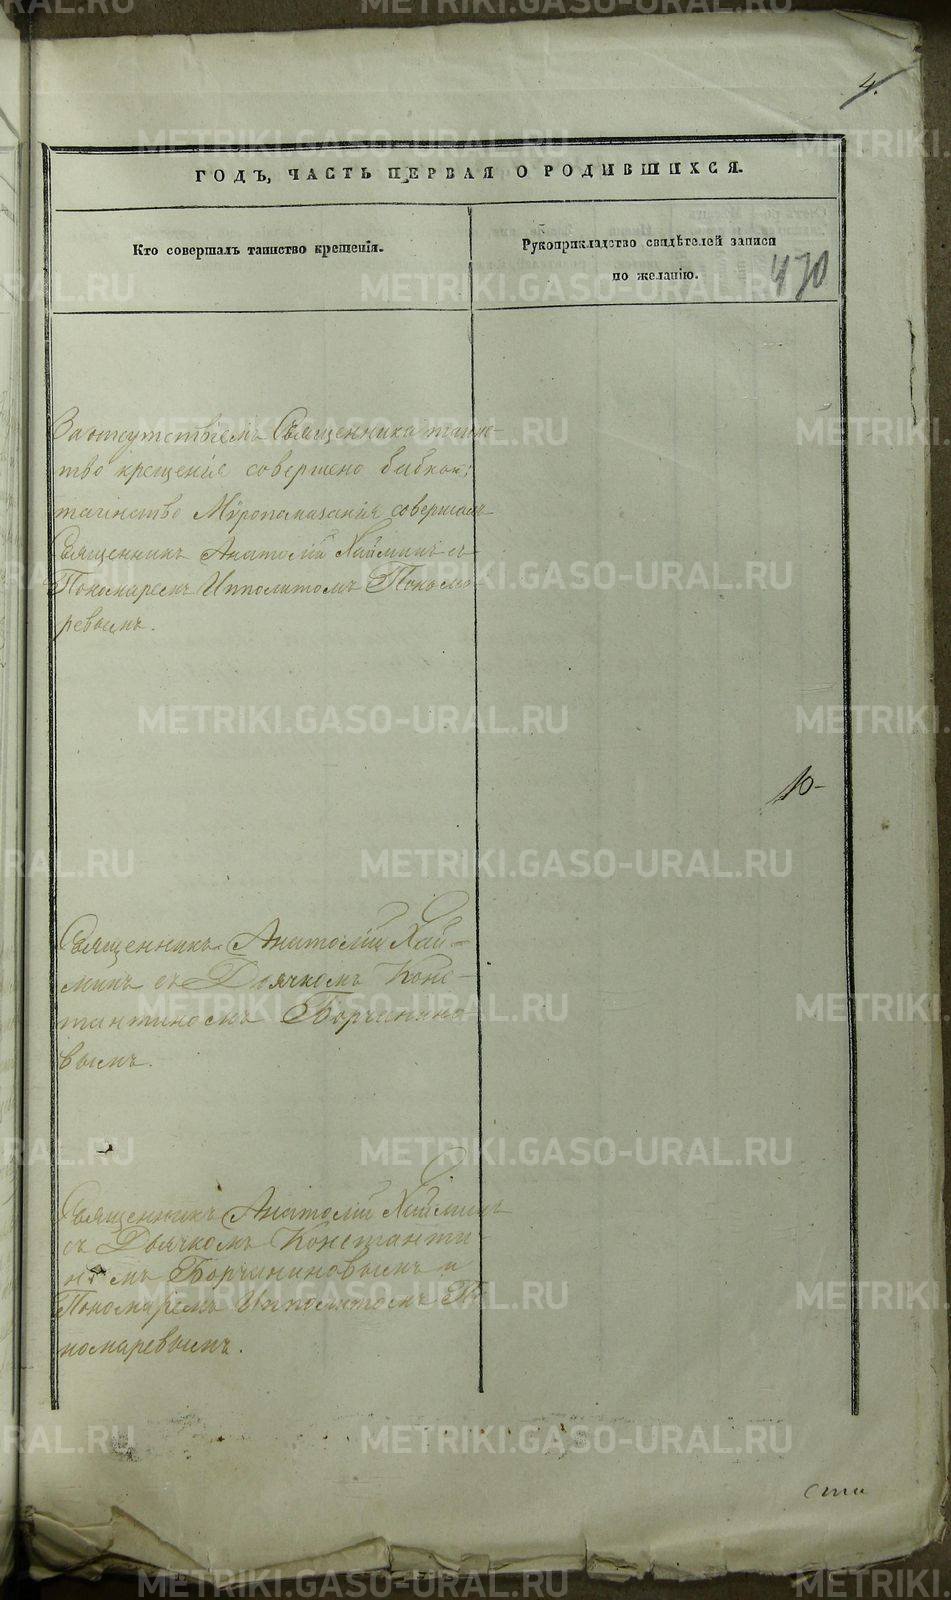 4.
ГОДЪ, ЧАСТЬ ПЕРВАЯ О РОДИВШИХСЯ.
Кто совершалъ таинство крещенія.
Рукоприкладство свидѣтелей записи
по желанію.
470
За отсутствіемъ Священника таин-
тво крещенія совершено бабкою;
таинство Мѵропомазанія совершалъ
Священникъ Анатолій Хайминъ съ
Пономаремъ Ипполитомъ Понома-
ревымъ.
10-
Священникъ Анатолій Хай-
минъ съ Дьячкомъ Конс-
тантиномъ Борчанино-
вымъ.
Священникъ Анатолій Хайминъ
съ Дьячкомъ Константи-
номъ Борчаниновымъ и
Пономаремъ Ипполитомъ По-
номаревымъ.
METRIKI.GASO-URAL.RU